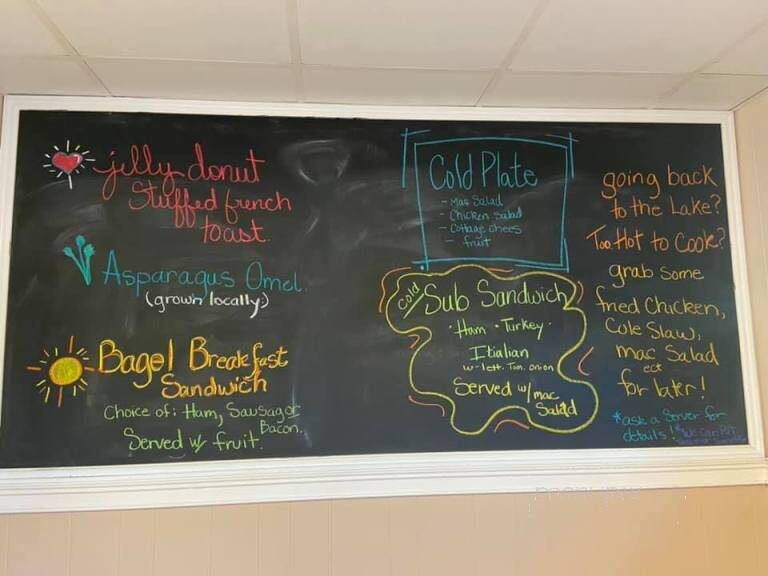 jelly donut
Stuffed french
toast.
Asparagus Omel.
(grown locally)
Bagel Breakfast
Sandwich
Choice of: Ham, Sausage or
Bacon.
Served w/ fruit.
Cold Plate
- Mac Salad
- Chicken Salad
- Cottage chees
- fruit
Cold/ Sub Sandwich
· Ham · Turkey ·
Itialian
w- lett. Tom. onion
Served w/ mac
Salad
going back
to the Lake?
Too Hot to Cook?
grab some
fried Chicken,
Cole Slaw,
mac Salad
ect
for later!
*ask a Server for
details! *We can